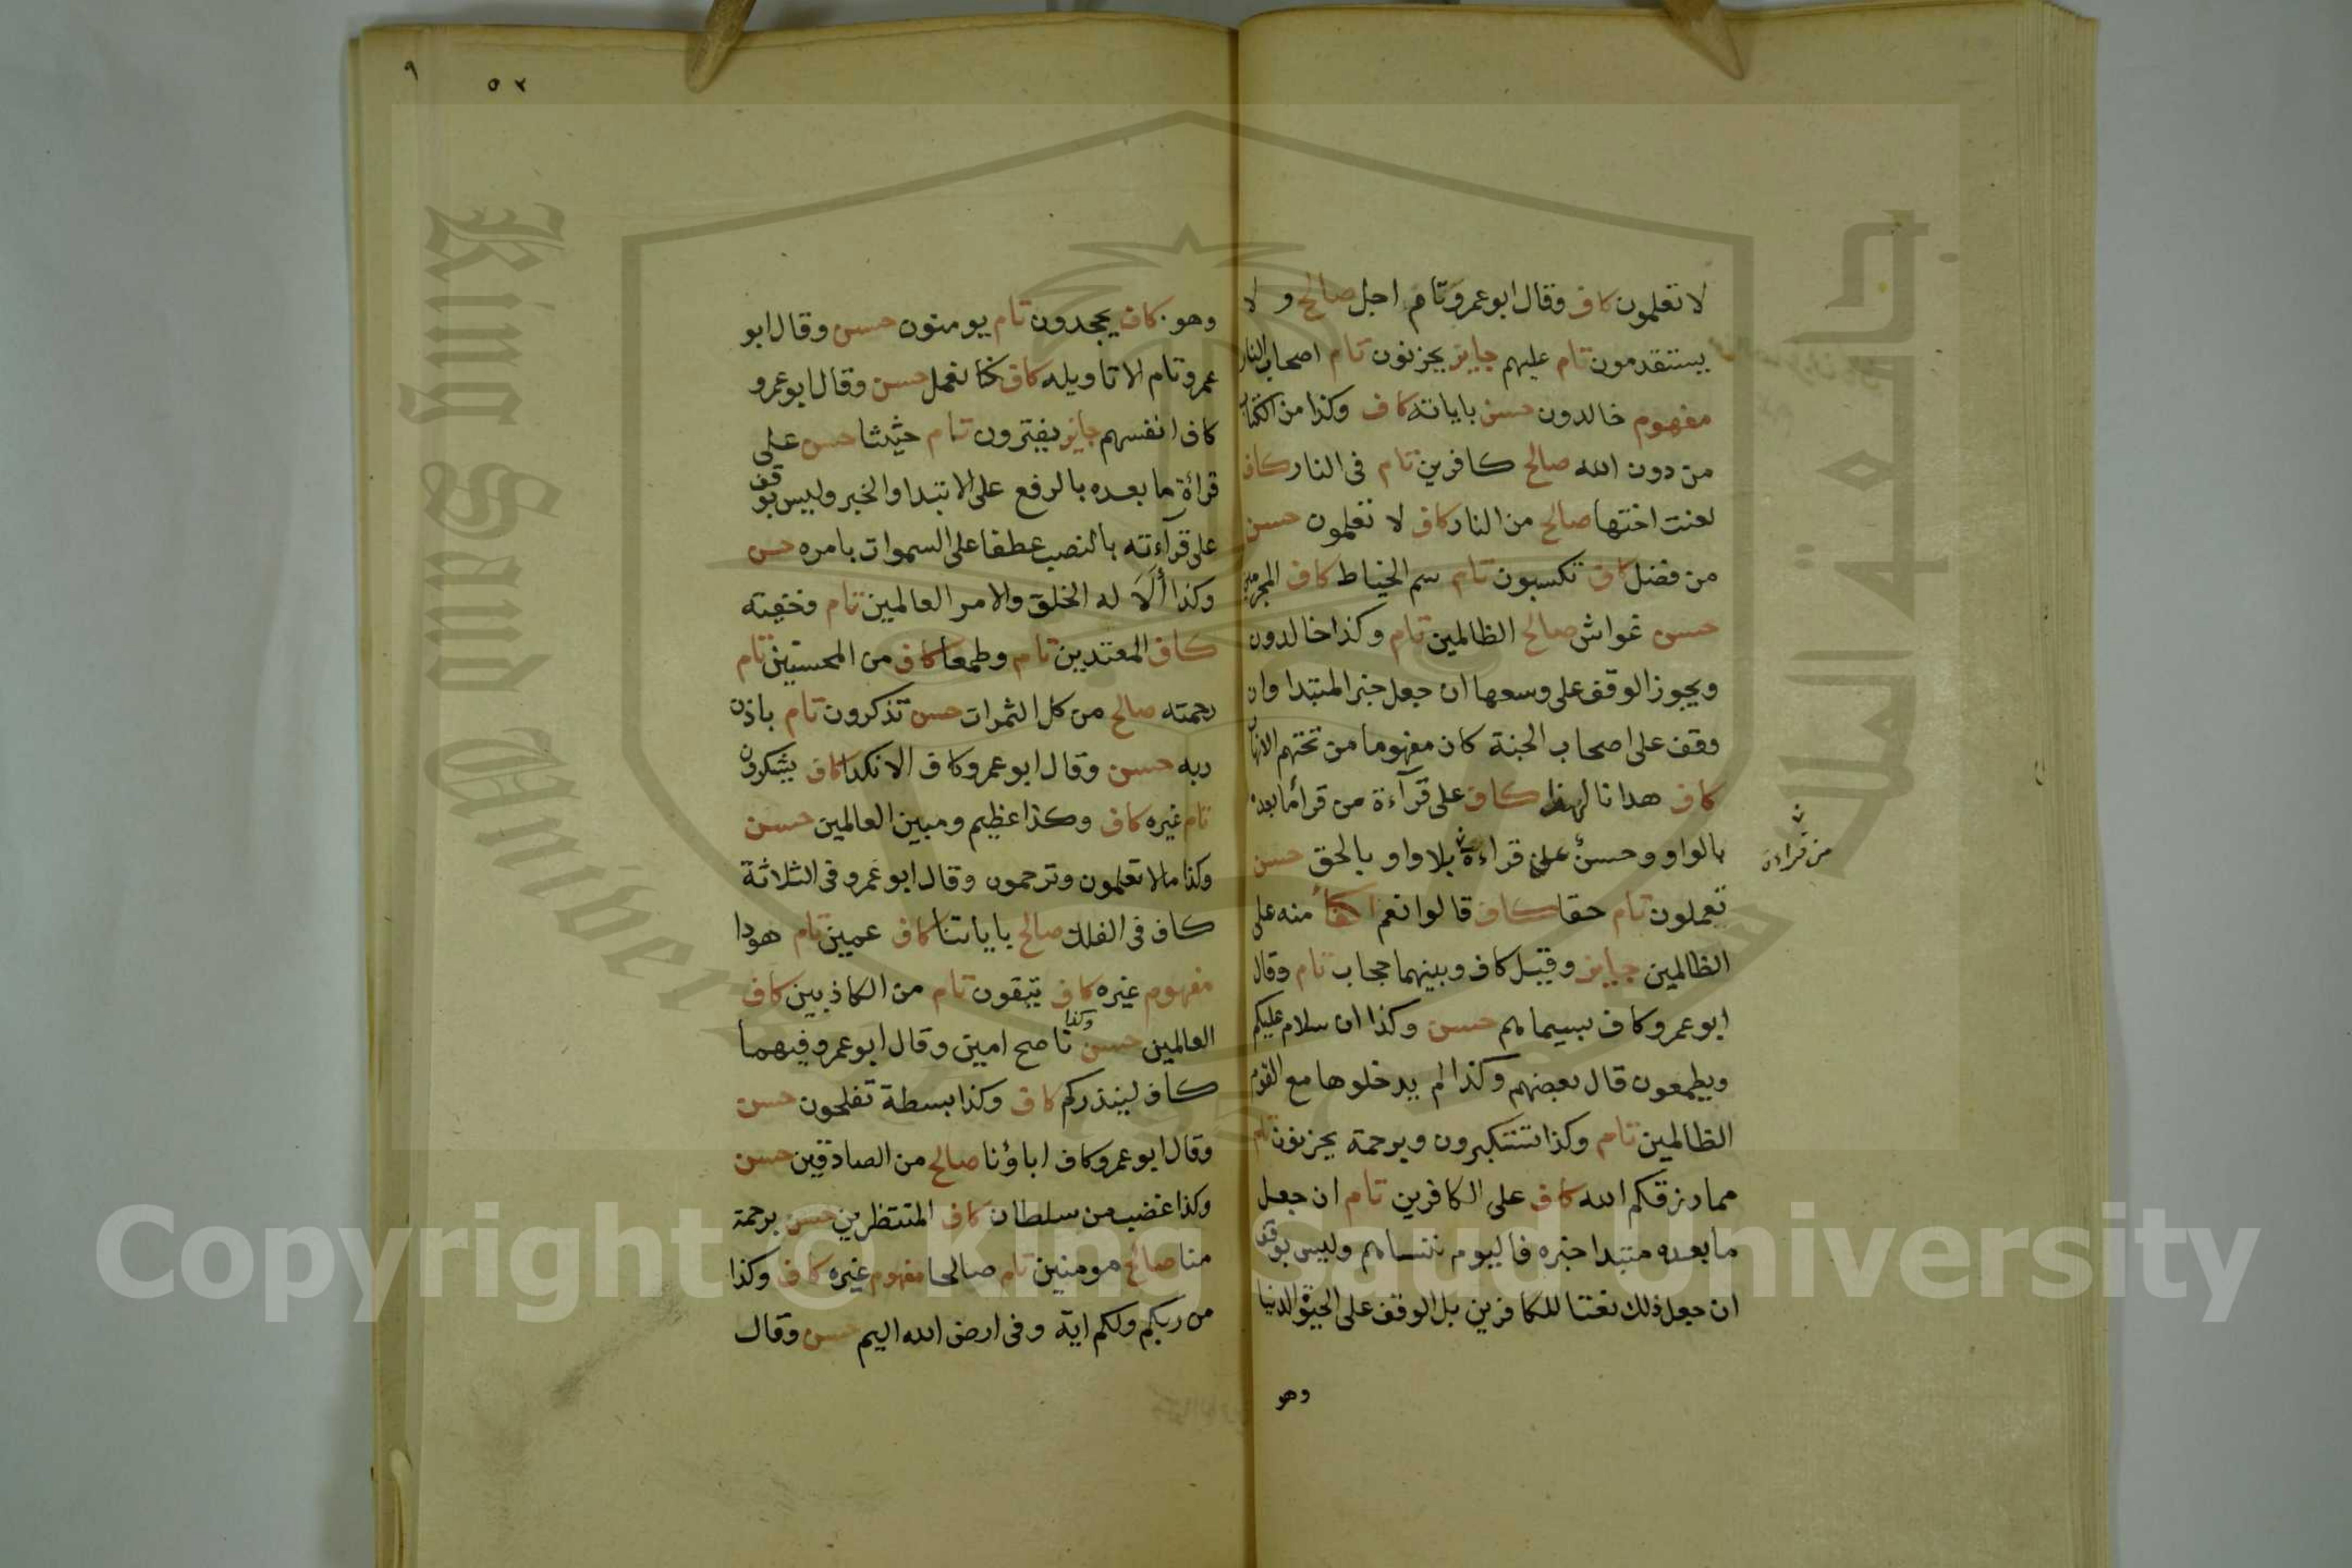 لا تعلمون كاف وقال ابو عمرو تام اجل صالح ولا
يستقدمون تام عليهم جايز يحزنون تام اصحاب النار
مفهوم خالدون حسن باياته كاف وكذا من الكتاب
من دون الله صالح كافرين تام في النار كاف
لعنت اختها صالح من النار كاف لا تعلمون حسن
من فضل كاف تكسبون تام سم الخياط كاف المجرمين
حسن غواش صالح الظالمين تام وكذا خالدون
ويجوز الوقف على وسعها ان جعل خبر المبتدا وان
وقف على اصحاب الجنة كان مفهوما من تحتهم الانهار
كاف هدانا لهذا كاف على قرآءة من قرأ ما بعده
بالواو وحسن على قراءة بلا واو بالحق حسن
من قراءة
تعملون تام حقا كاف قالوا نعم منه على
الظالمين جايز وقيل كاف وبينهما حجاب تام وقال
ابو عمرو كاف بسيماهم حسن وكذا ان سلام عليكم
ويطمعون قال بعضهم وكذا لم يدخلوها مع القوم
الظالمين تام وكذا تستكبرون وبرحمة يحزنون تام
مما رزقكم الله كاف على الكافرين تام ان جعل
ما بعده مبتدا خبره فاليوم ننساهم وليس بوقف
ان جعل ذلك نعتا للكافرين بل الوقف على الحيوة الدنيا
وهو
٩
٥٢
وهو كاف يجحدون تام يومنون حسن وقال ابو
عمرو تام الا تاويله كاف كنا نعمل حسن وقال ابو عمرو
كاف انفسهم جايز يفترون تام حثيثا حسن على
قرأة ما بعده بالرفع على الابتدا والخبر وليس بوقف
على قرآءته بالنصب عطفا على السموات بامره حسن
وكذا ألَا له الخلق والامر العالمين تام وخفية
كاف المعتدين تام وطمعا كاف من المحسنين تام
رحمته صالح من كل الثمرات حسن تذكرون تام باذن
ربه حسن وقال ابو عمرو كاف الا نكدا كاف يشكرون
تام غيره كاف وكذا عظيم ومبين العالمين حسن
وكذا ما لا تعلمون وترحمون وقال ابو عمرو في الثلاثة
كاف في الفلك صالح باياتنا كاف عمين تام هودا
مفهوم غيره كاف تتقون تام من الكاذبين كاف
العالمين حسن وكذا ناصح امين وقال ابو عمرو فيهما
كاف لينذركم كاف وكذا بسطة تفلحون حسن
وقال ابو عمرو كاف اباؤنا صالح من الصادقين حسن
وكذا غضب من سلطان كاف المنتظرين حسن برحمة
منا صالح مومنين تام صالحا مفهوم غيره كاف وكذا
من ربكم ولكم اية وفي ارض الله اليم حسن وقال
جامعة الملك سعود
King Saud University
Copyright © King Saud University